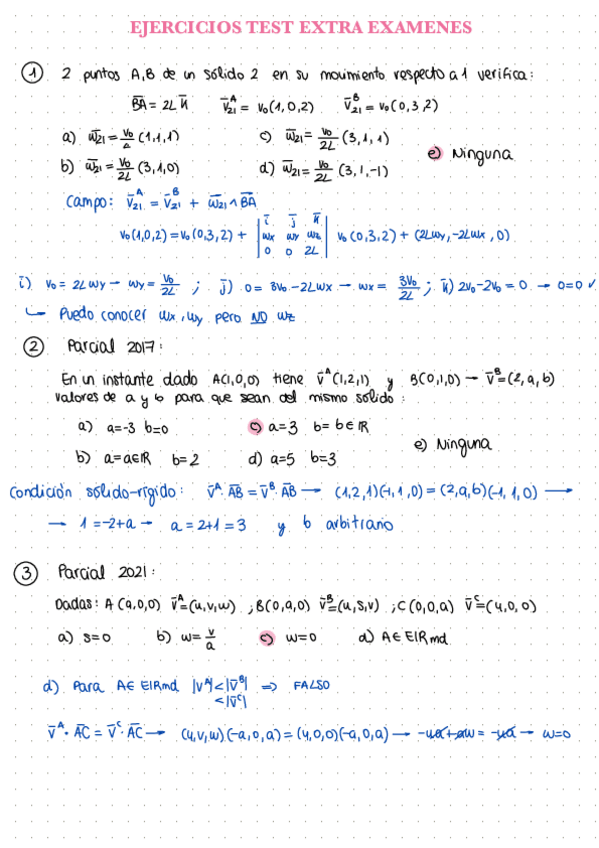 EJERCICIOS TEST EXTRA EXAMENES
① 2 puntos A,B de un sólido 2 en su movimiento respecto a 1 verifica:
B̅A̅ = 2L k̅   v̅₂₁ᴬ = v₀(1,0,2)   v̅₂₁ᴮ = v₀(0,3,2)
a) w̅₂₁ = v₀/L (1,1,1)   c) w̅₂₁ = v₀/2L (3,1,1)
e) Ninguna
b) w̅₂₁ = v₀/2L (3,1,0)   d) w̅₂₁ = v₀/2L (3,1,-1)
Campo: v̅₂₁ᴬ = v̅₂₁ᴮ + w̅₂₁ ∧ B̅A̅
v₀(1,0,2) = v₀(0,3,2) + | i̅ j̅ k̅ ; wx wy wz ; 0 0 2L | v₀(0,3,2) + (2Lwy, -2Lwx, 0)
i̅) v₀ = 2Lwy → wy = v₀/2L ; j̅) 0 = 3v₀ - 2Lwx → wx = 3v₀/2L ; k̅) 2v₀ - 2v₀ = 0 → 0=0 ✓
↪ Puedo conocer wx, wy pero NO wz
② Parcial 2017:
En un instante dado A(1,0,0) tiene v̅ᴬ(1,2,1) y B(0,1,0) → v̅ᴮ=(2,a,b)
valores de a y b para que sean del mismo solido:
a) a=-3 b=0   c) a=3 b= b∈ℝ
e) Ninguna
b) a=a∈ℝ b=2   d) a=5 b=3
Condición sólido-rígido: v̅ᴬ·A̅B̅ = v̅ᴮ·A̅B̅ → (1,2,1)(-1,1,0) = (2,a,b)(-1,1,0) →
→ 1 = -2+a → a = 2+1 = 3 y b arbitrario
③ Parcial 2021:
Dadas: A(a,0,0) v̅ᴬ=(u,v,w) ; B(0,a,0) v̅ᴮ=(u,s,v) ; C(0,0,a) v̅ᶜ=(u,0,0)
a) s=0   b) w= v/a   c) w=0   d) A∈EIRmd
d) Para A∈ EIRmd |v̅ᴬ|<|v̅ᴮ| ⇒ FALSO
<|v̅ᶜ|
v̅ᴬ·A̅C̅ = v̅ᶜ·A̅C̅ → (u,v,w)(-a,0,a) = (u,0,0)(-a,0,a) → -ua+aw = -ua → w=0